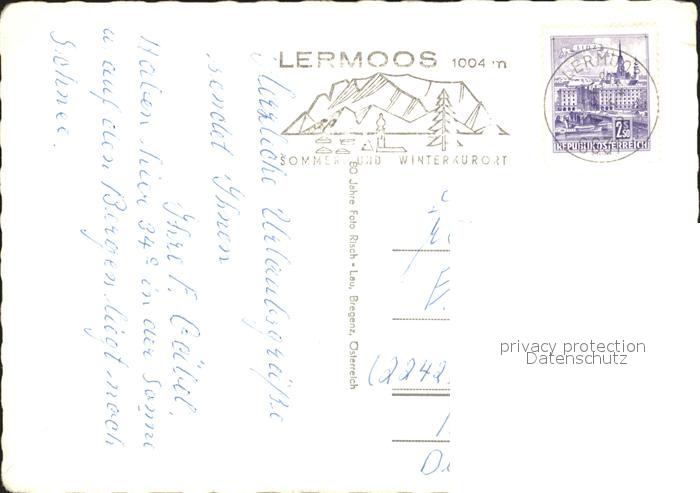 LERMOOS 1004 m
SOMMER UND WINTERKURORT
LERMOOS
2.50
REPUBLIK ÖSTERREICH
Herzliche Urlaubsgrüße
sendet Ihnen
Ihre F.
Haben hier 34° in der Sonne
u auf den Bergen liegt noch
Schnee.
80 Jahre Foto Risch-Lau, Bregenz, Österreich
(2242
privacy protection
Datenschutz